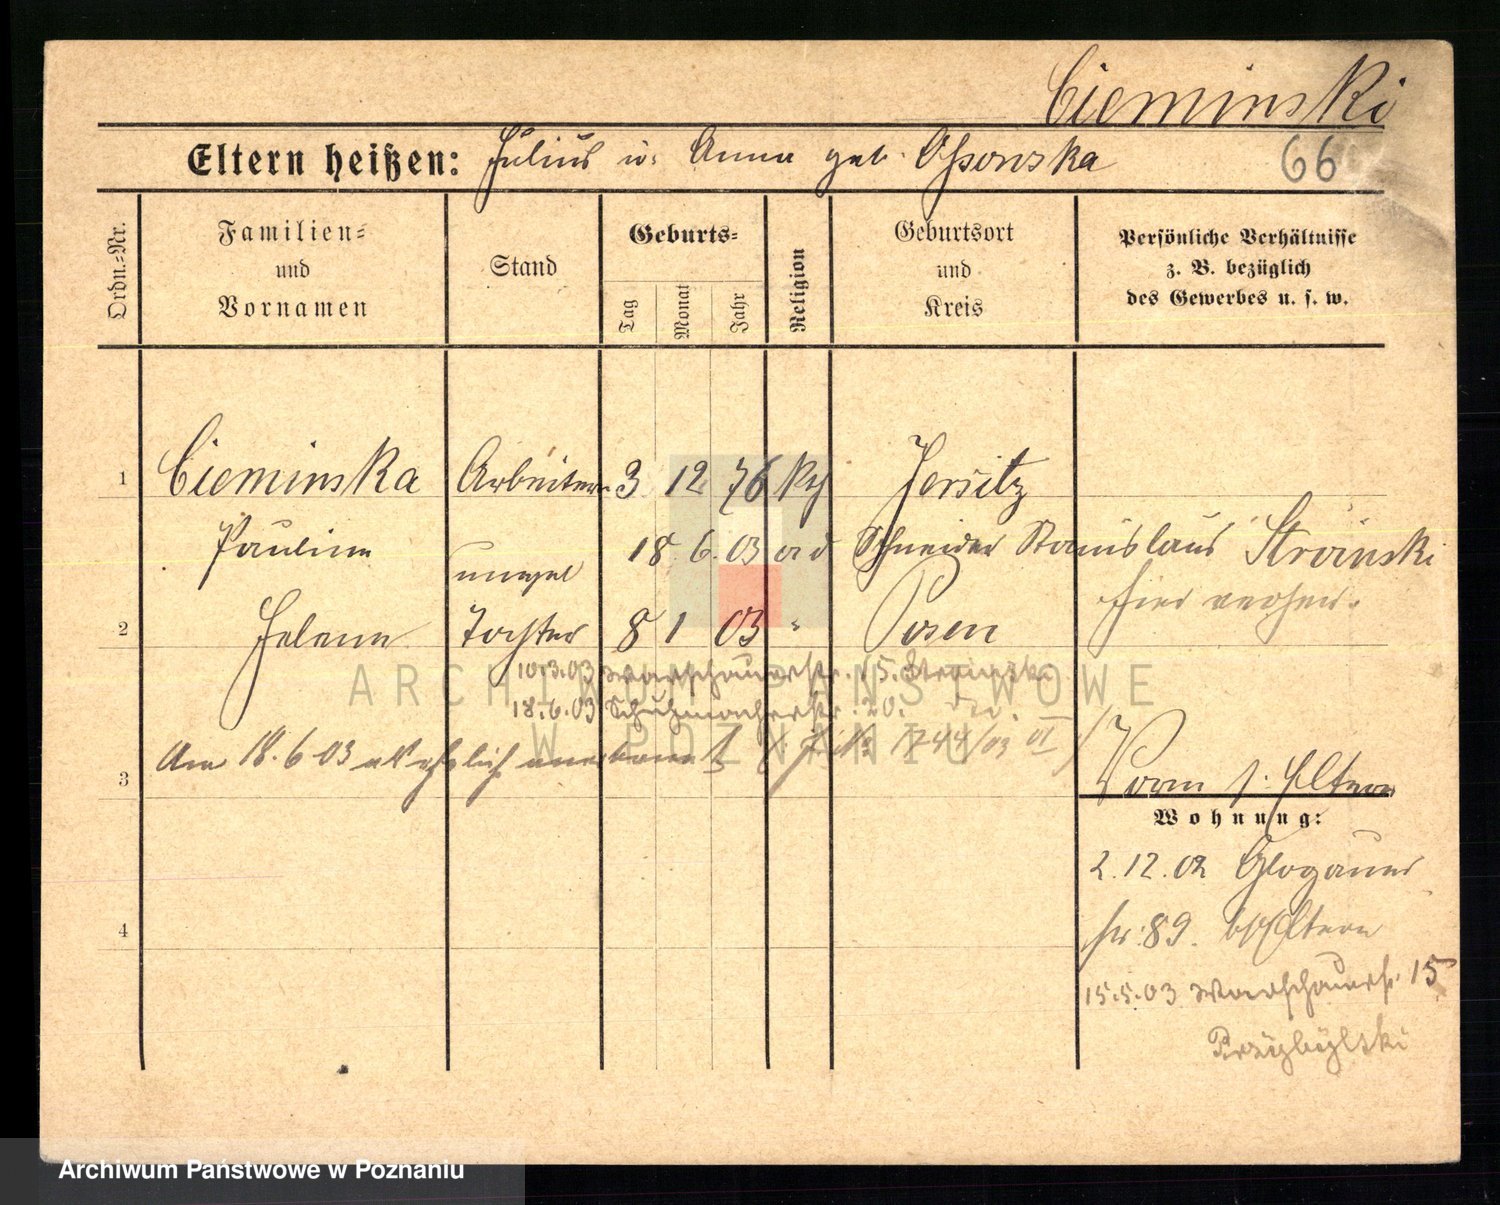 Cieminski
Eltern heißen: Julius u. Anna geb. Ossowska
66
Ordn.-Nr.
Familien-
und
Vornamen
Stand
Geburts-
Tag
Monat
Jahr
Religion
Geburtsort
und
Kreis
Persönliche Verhältnisse
z. B. bezüglich
des Gewerbes u. s. w.
1 Cieminska Arbeiterin 3 12 76 kth Jersitz
Pauline 18. 6. 03 Schneider Stanislaus Stroinski
hier verheir.
2 Helene Tochter 8 1 03 " Posen
10.3.03 Warschauerstr. 15. Stroinski
18.6.03 Schuhmacherstr. 20.
Am 18.6.03 1744/03 VI
3
Vorm s. Eltern
Wohnung:
2.12.02 Glogauer
str. 89. Eltern
4
15.5.03 Warschauerstr. 15
Przybylski
ARCHIWUM PAŃSTWOWE
W POZNANIU
Archiwum Państwowe w Poznaniu